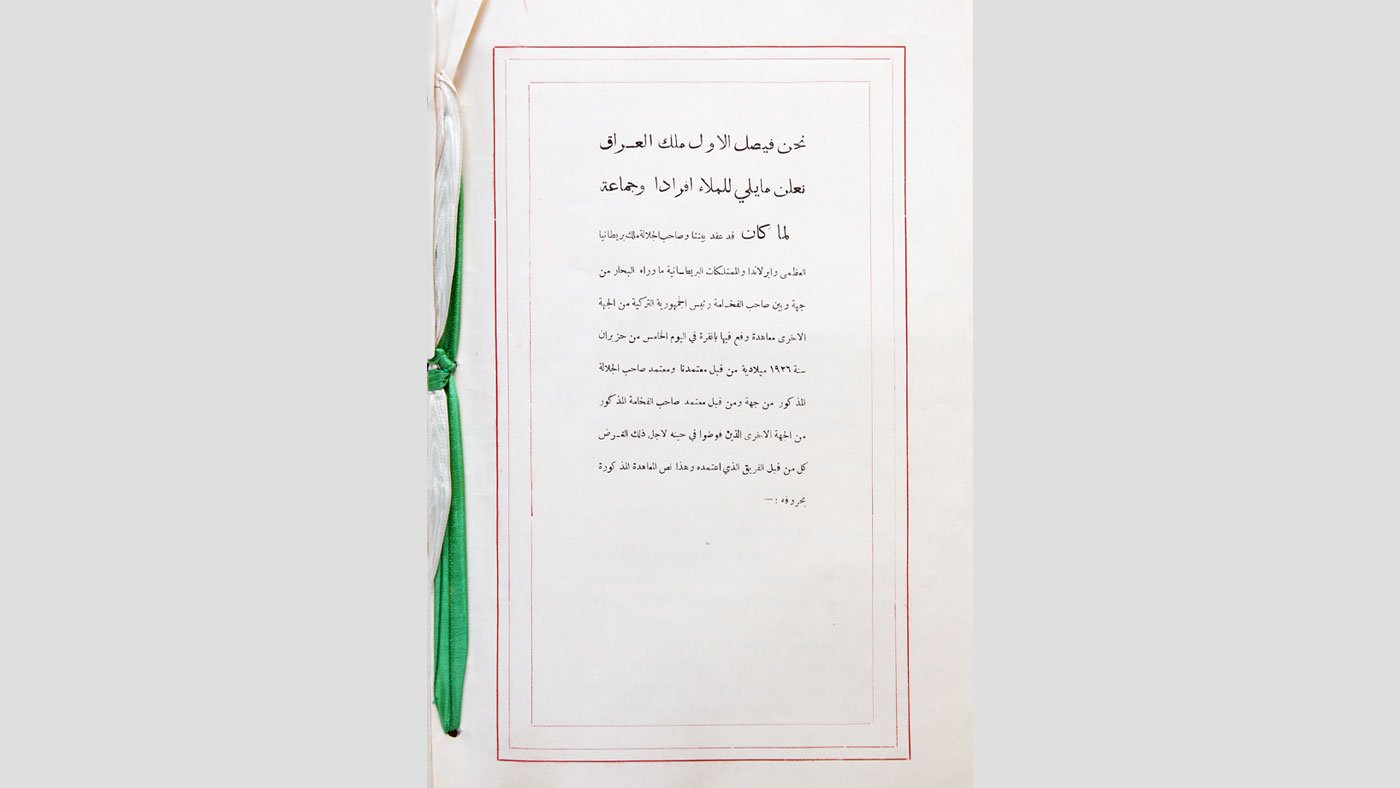 نحن فيصل الاول ملك العـراق
نعلن مايلي للملاء افرادا وجماعة
لما كان قد عقد بيننا وصاحب الجلالة ملك بريطانيا
العظمى وايرلاندا والممتلكات البريطـانية ما وراء البحار من
جهة وبين صاحب الفخـامة رئيس الجمهورية التركية من الجهة
الاخرى معاهدة وقع فيها بانقرة في اليوم الخامس من حزيران
سنة ١٩٣٦ ميلادية من قبل معتمدنا ومعتمد صاحب الجلالة
المذكور من جهة ومن قبل معتمد صاحب الفخامة المذكور
من الجهة الاخرى الذين فوضوا في حينه لاجل ذلك الغـرض
كل من قبل الفريق الذي اعتمده وهذا نص المعاهدة المذكورة
بحروفه :—